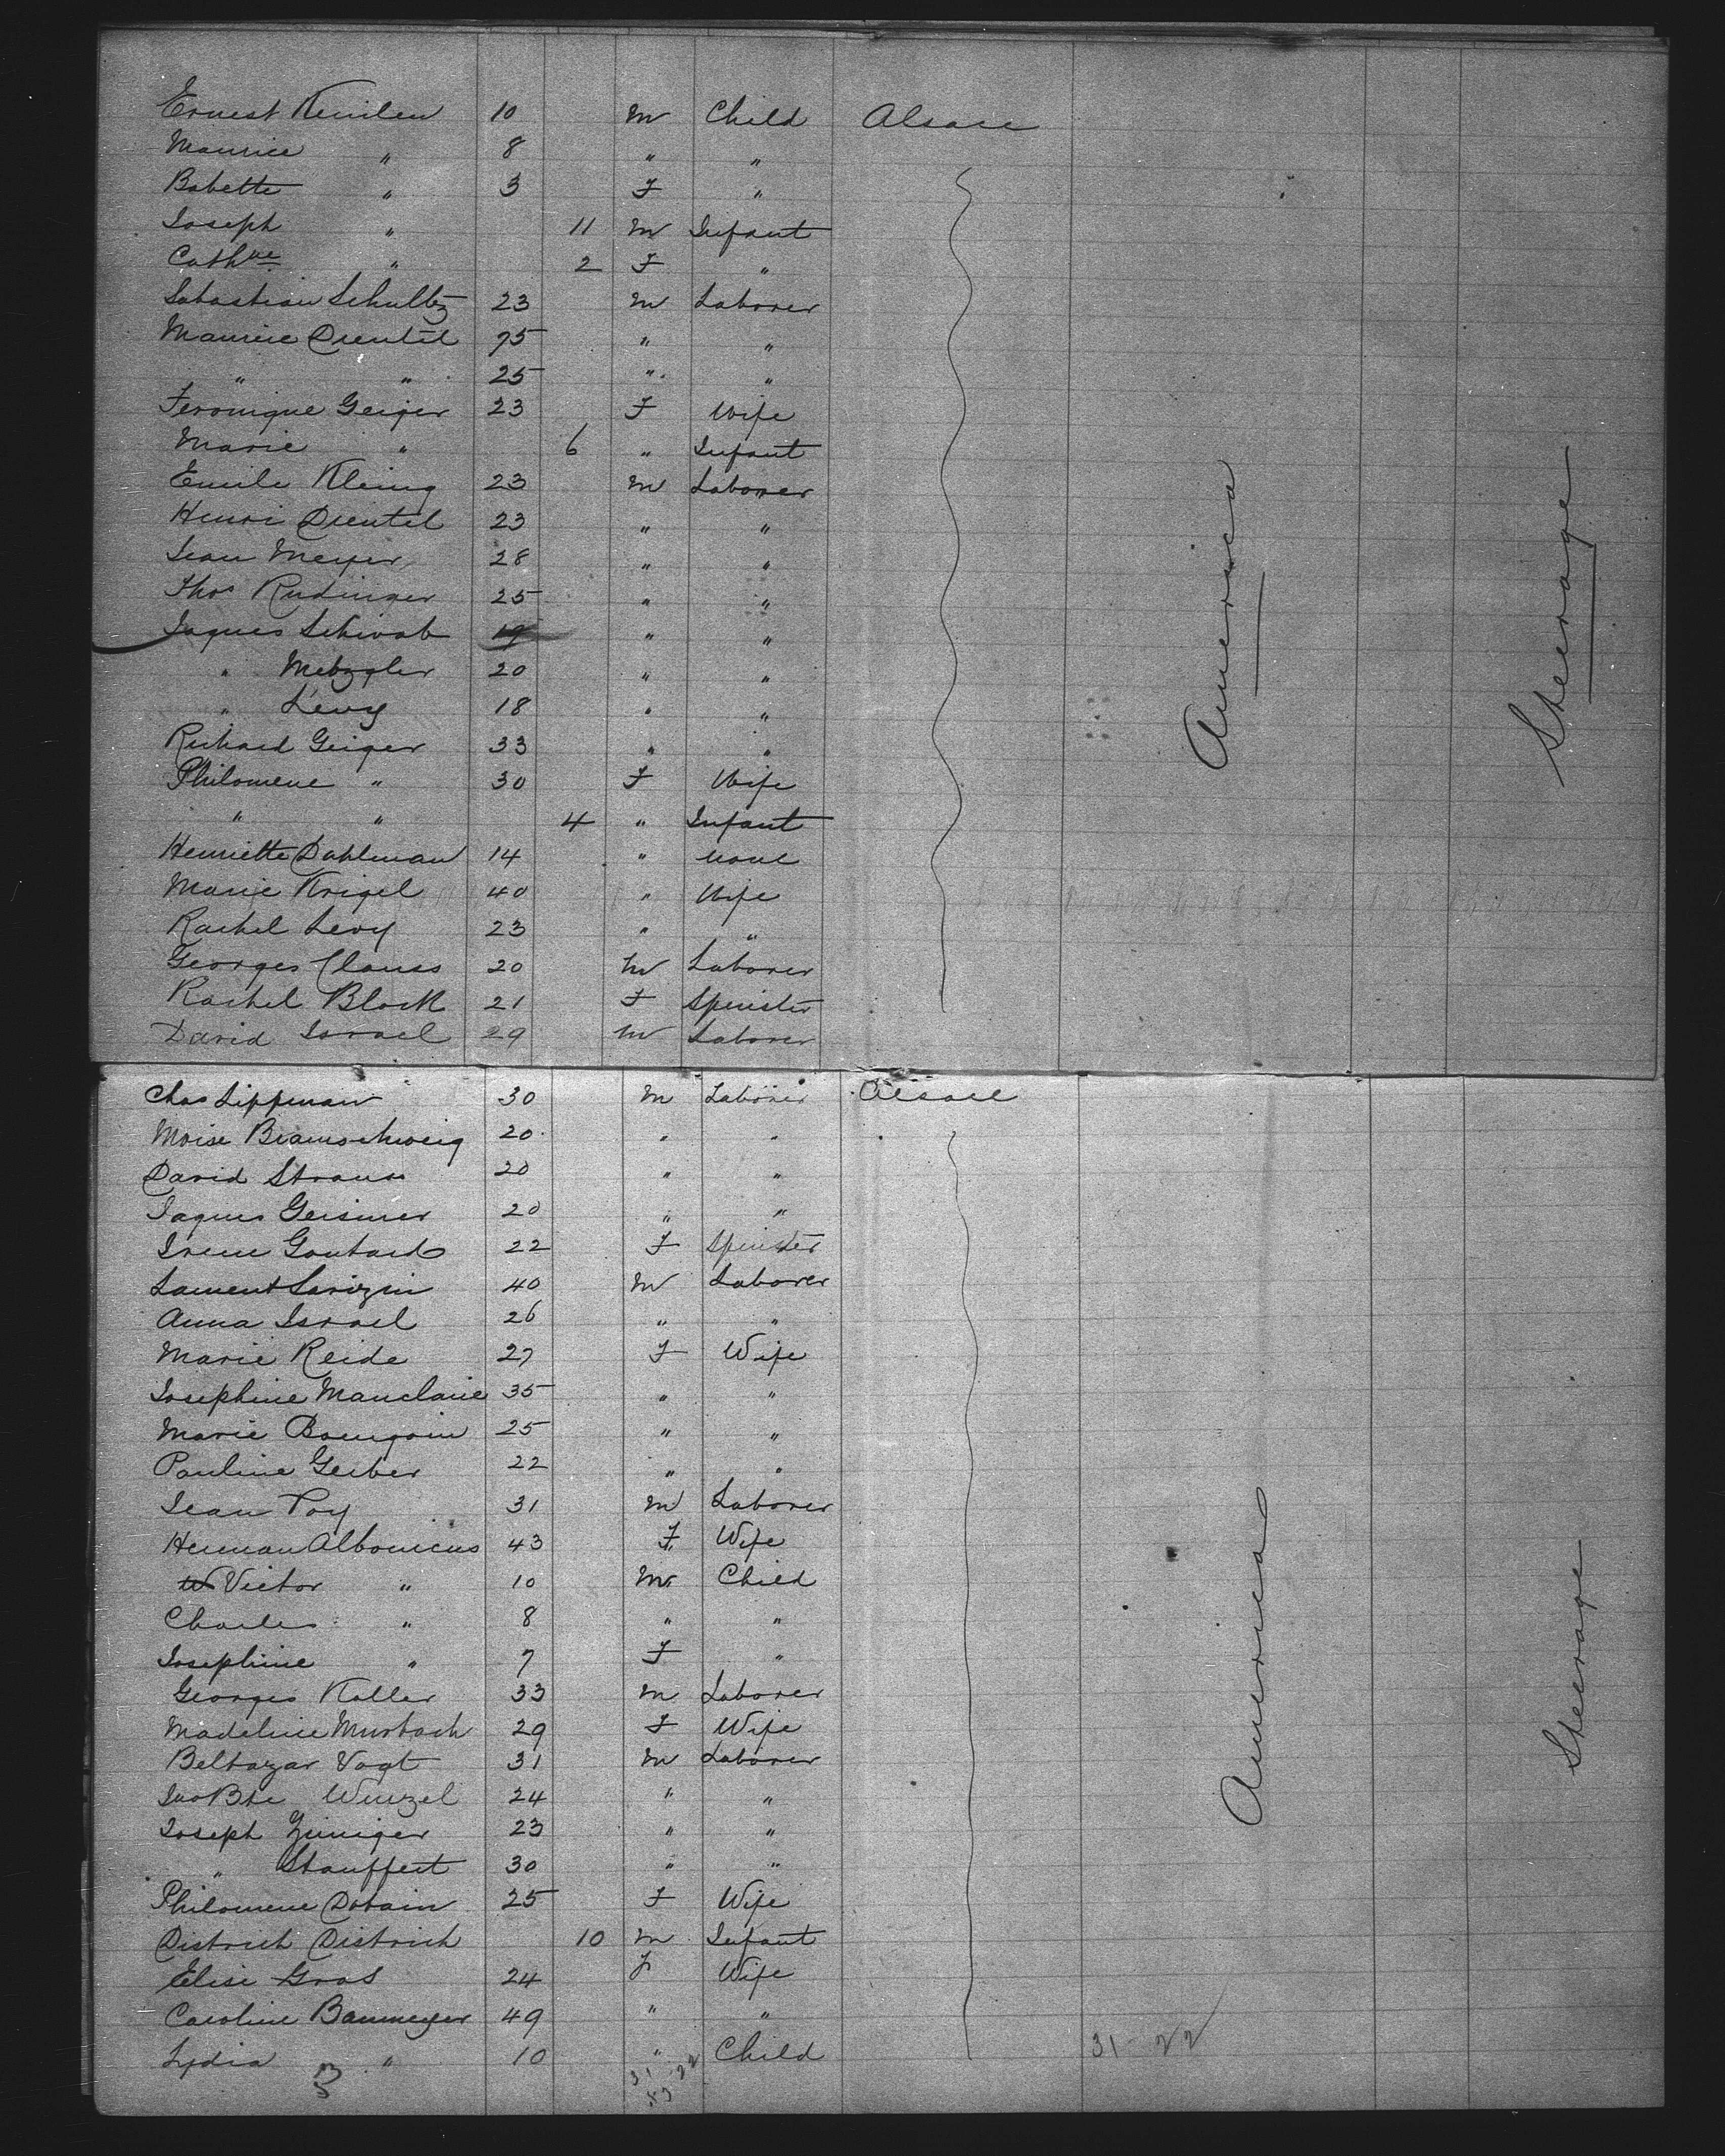 Ernest Kenilen 10 M Child Alsace
Maurice " 8 " "
Babette " 3 F "
Joseph " 11 M Infant
Cathne " 2 F "
Sabastian Schultz 23 M Laborer
Maurice Drentel 75 " "
" " 25 " "
Feronique Geiger 23 F Wife
Marie " 6 " Infant
Emile Kleing 23 M Laborer
Henri Drentel 23 " "
Jean Meyer 28 " "
Thos Rudinger 25 " "
Jaques Schwab 19 " "
" Metzgler 20 " "
" Lévy 18 " "
Richard Geiger 33 " "
Philomene " 30 F Wife
" " 4 " Infant
Henriette Dahlman 14 " None
Marie Krigel 40 " Wife
Rachel Levy 23 " "
Georges Clauss 20 M Laborer
Rachel Block 21 F Spinster
David Israel 29 M Laborer
America
Steerage
Chas Lippman 30 M Laborer Alsace
Moise Bramschweig 20 " "
David Strauss 20 " "
Jaques Geismer 20 " "
Irene Goutard 22 F Spinster
Lament Sarizin 40 M Laborer
Anna Israel 26 " "
Marie Reide 27 F Wife
Josephine Manclaire 35 " "
Marie Bourgoin 25 " "
Pauline Gerber 22 " "
Jean Poy 31 M Laborer
Herman Albonicus 43 F Wife
Victor " 10 M Child
Charles " 8 " "
Josephine " 7 F "
Georges Koller 33 M Laborer
Madeline Murbach 29 F Wife
Beltazar Vogt 31 M Laborer
Jno Bte Winzel 24 " "
Joseph Ziniger 23 " "
" Stauffert 30 " "
Philomene Dobain 25 F Wife
Districh Districh 10 M Infant
Elise Gras 24 F Wife
Caroline Baumeyer 49 " "
Lydia " 10 " Child
America
Steerage
31 22
3
31 22
53